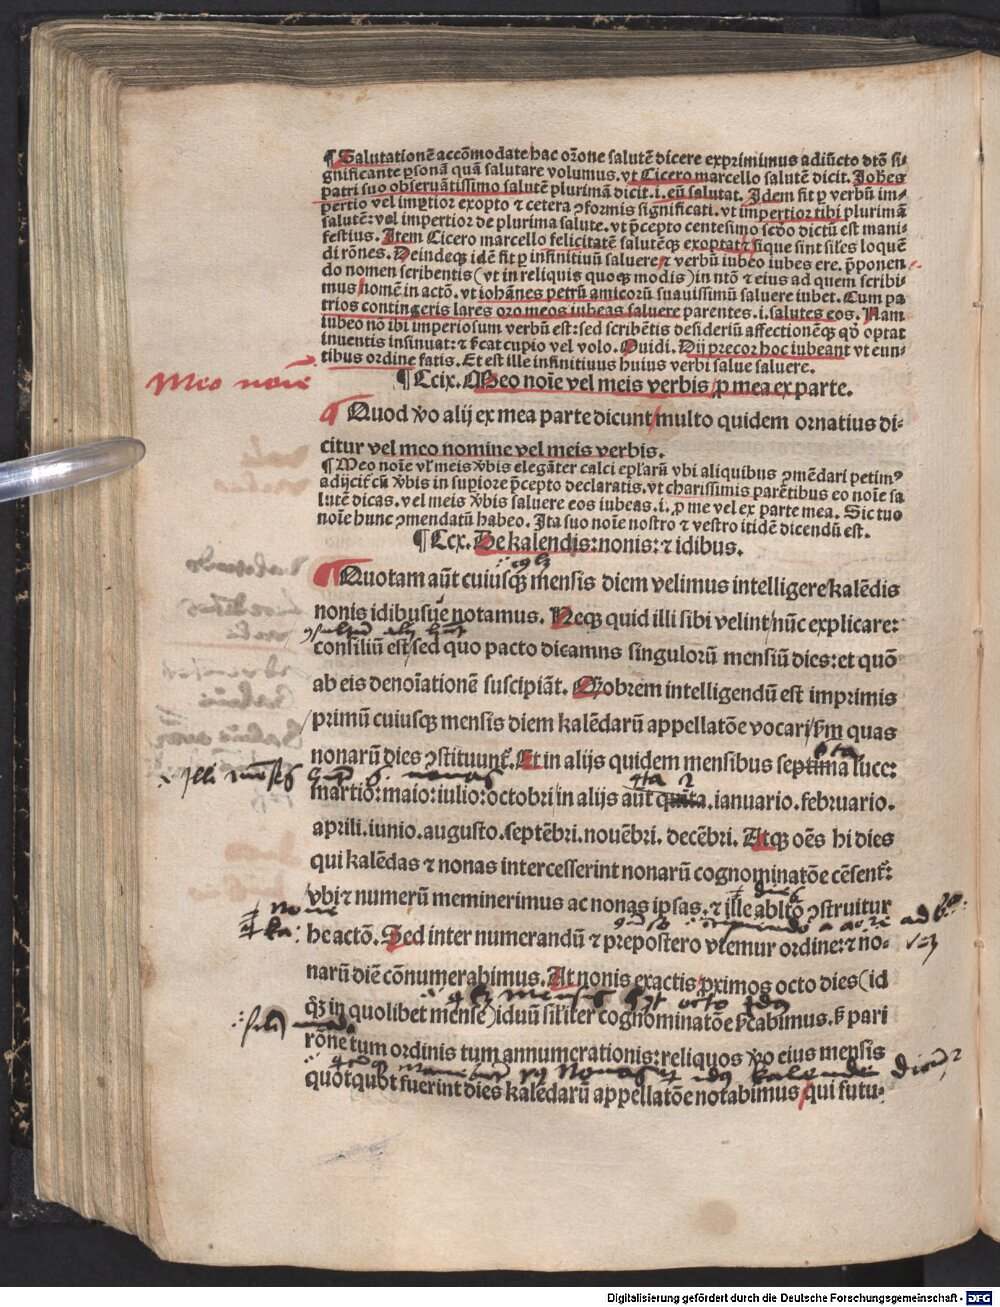 ¶ Salutationē accōmodate hac orōne salutē dicere exprimimus adiūcto dtō si⸗
gnificante ꝑsonā quā salutare volumus. vt Cicero marcello salutē dicit. Johēs
patri suo obseruātissimo salutē plurimā dicit. i. eū salutat. Idem fit ꝑ verbū im⸗
pertio vel imꝑtior exopto ⁊ cetera ꝯformis significati. vt impertior tibi plurimā
salutē: vel impertior de plurima salute. vt p̄cepto centesimo scdo dictū est mani⸗
festius. Item Cicero marcello felicitatē salutēqꝫ exoptat ⁊ sique sint siles loquē
di rōnes. Deindeqꝫ idē fit ꝑ infinitiuū saluere ⁊ verbū iubeo iubes ere. p̄ponen
do nomen scribentis (vt in reliquis quoqꝫ modis) in ntō ⁊ eius ad quem scribi⸗
mus nomē in actō. vt iohānes petrū amicorū suauissimū saluere iubet. Cum pa
trios contingeris lares oro meos iubeas saluere parentes. i. salutes eos. Nam
iubeo nō ibi imperiosum verbū est: sed scribētis desideriū affectionēqꝫ qd̄ optat
inuentis insinuat: ⁊ sc̄at cupio vel volo. Ouidi. Dij precor hoc iubeant vt eun⸗
tibus ordine fatis. Et est ille infinitiuus huius verbi salue saluere.
Meo noīe
¶ Ccix. Meo noīe vel meis verbis ꝓ mea ex parte.
Quod v̄o alij ex mea parte dicunt multo quidem ornatius di⸗
citur vel meo nomine vel meis verbis.
¶ Meo noīe vl̓ meis v̄bis elegāter calci ep̄larū vbi aliquibus ꝯmēdari petimꝰ
adijcit̓ cū v̄bis in suꝑiore p̄cepto declaratis. vt charissimis parētibus eo noīe sa
lutē dicas. vel meis v̄bis saluere eos iubeas. i. ꝓ me vel ex parte mea. Sic tuo
noīe hunc ꝯmendatū habeo. Ita suo noīe nostro ⁊ vestro itidē dicendū est.
¶ Ccx. De kalendis: nonis: ⁊ idibus.
Quotam aūt cuiusqꝫ mensis diem velimus intelligere kalēdis
nonis idibusue notamus. Neqꝫ quid illi sibi velint nūc explicare:
consiliū est sed quo pacto dicamus singulorū mensiū dies: et quō
ab eis denoīationē suscipiāt. Q̄obrem intelligendū est imprimis
primū cuiusqꝫ mensis diem kalēdarū appellatōe vocari ẜm quas
nonarū dies ꝯstituunt̓. Et in alijs quidem mensibus septima lucc:
martio: maio: iulio: octobri in alijs aūt quīta. ianuario. februario.
aprili. iunio. augusto. septēbri. nouēbri. decēbri. Atqꝫ oēs hi dies
qui kalēdas ⁊ nonas intercesserint nonarū cognominatōe cēsent̓:
vbi ⁊ numerū meminerimus ac nonas ipsas. ⁊ ille abltō ꝯstruitur
he actō. Sed inter numerandū ⁊ prepostero vtemur ordine: ⁊ no⸗
narū diē cōnumerabimus. At nonis exactis ꝓximos octo dies (id
qd̓ in quolibet mense) iduū sil̓iter cognominatōe sc̄abimus. ẜ pari
rōne tum ordinis tum annumerationis: reliquos v̄o eius mensis
quotquot fuerint dies kalēdarū appellatōe notabimus qui futu⸗
Digitalisierung gefördert durch die Deutsche Forschungsgemeinschaft - DFG